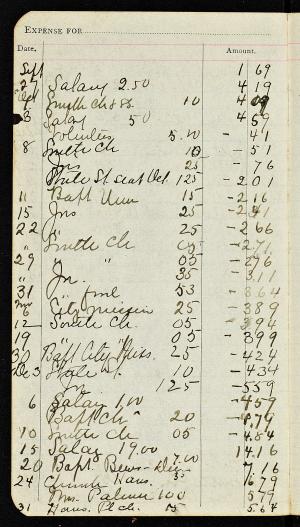 EXPENSE FOR
Date. Amount.
Sept 1 69
Salary 2.50 4 19
Oct South Ch 10 4 09
3 Salary 50 4 59
5.00 - 41
8 South Ch 10 - 51
Ins 25 - 76
State St Seat Oct 125 - 2 01
" Bapt Union 15 - 2 16
15 Ins 25 - 2 41
22 " 25 - 2 66
" South Ch 05 - 2.71
29 " " 05 - 2 76
" Jn. 35 - 3.11
31 " 53 - 3.64
Nov 6 City Mission 25 - 3 89
12 South Ch. 05 - 3 94
19 " 05 - 3 99
30 Bapt City Miss. 25 - 4 24
Dec 3 State St. 10 - 4 34
125 - 5 59
6 Salary 1.00 - 4 59
Bapt Ch 20 - 4.79
10 South Ch 05 - 4.84
15 Salary 19.00 14.16
20 Bapt. 7.00 7.16
24 6 79
Mrs. Palmer 100 5 79
31 Ch. 15 5.64